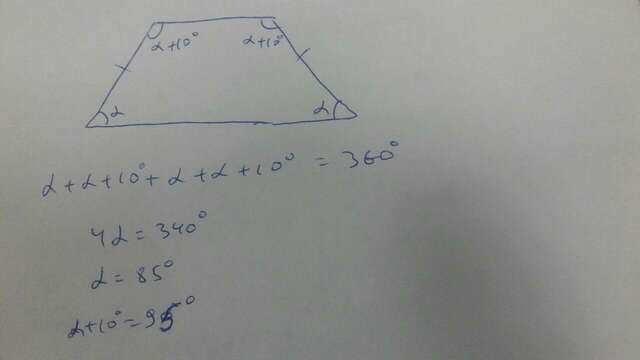 α+10° α+10°
α α
α+α+10°+α+α+10° = 360°
4α=340°
α=85°
α+10°=95°